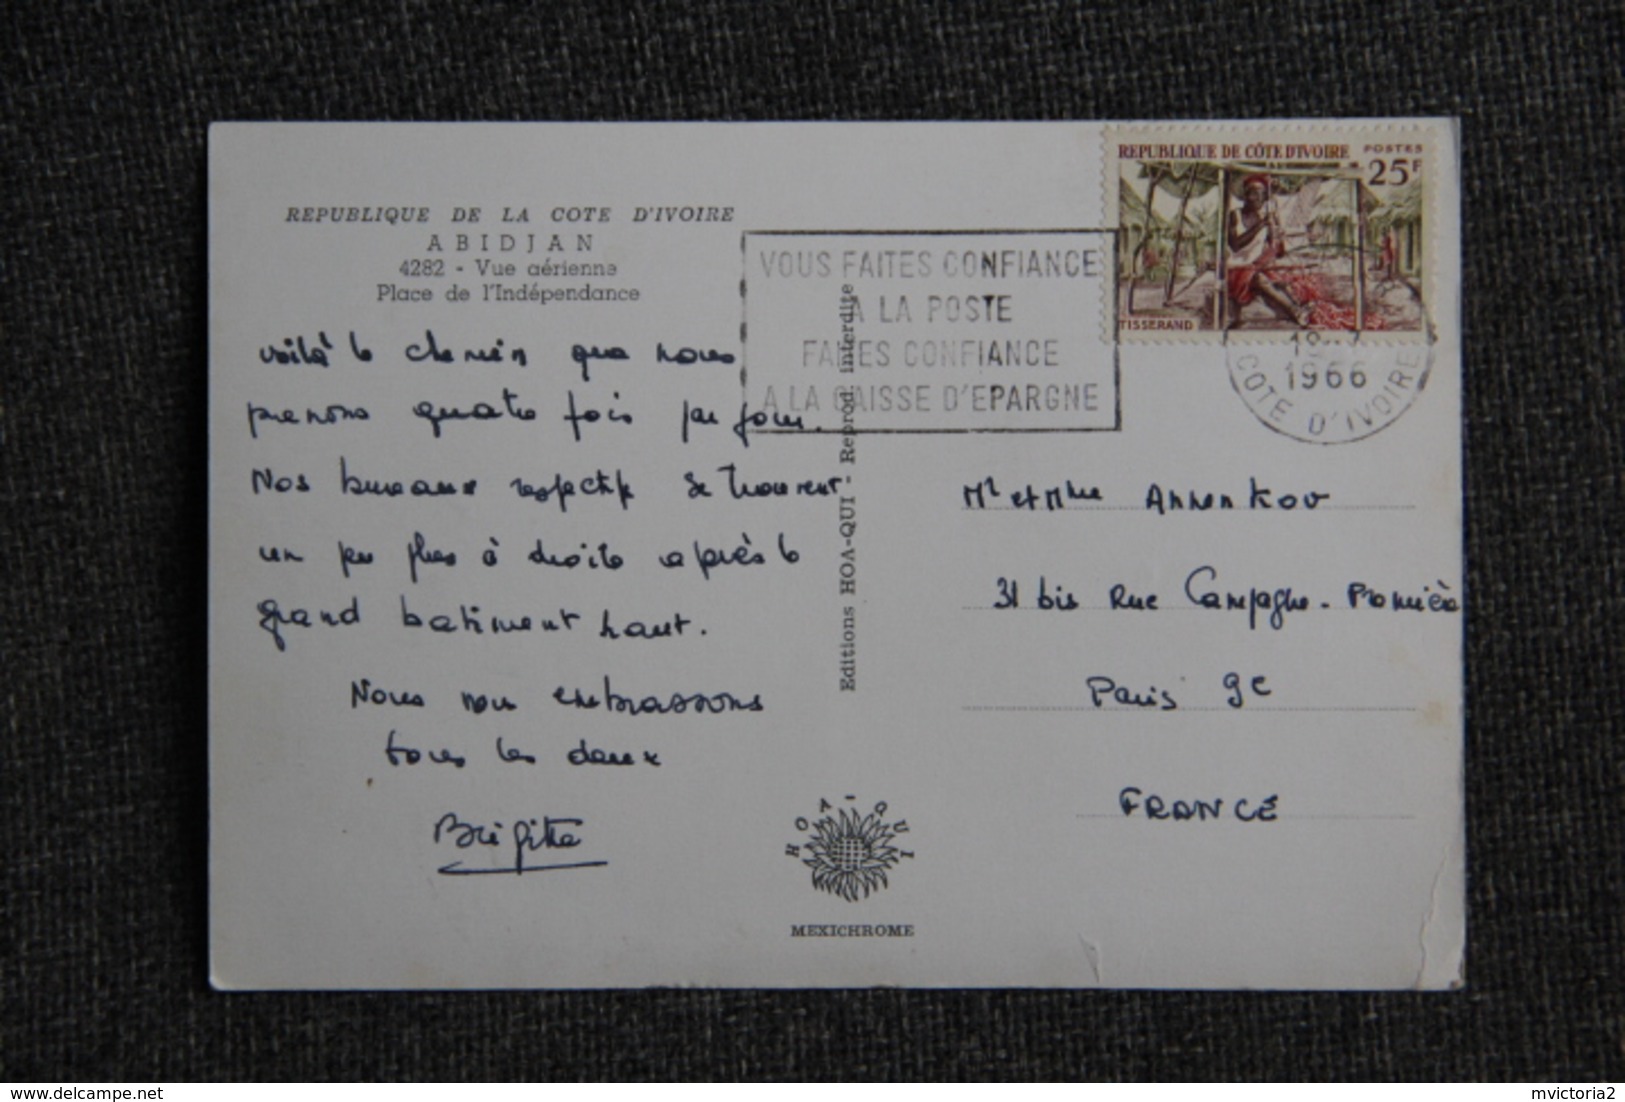 REPUBLIQUE DE LA COTE D'IVOIRE
ABIDJAN
4282 - Vue aérienne
Place de l'Indépendance
voilà le chemin que nous
prenons quatre fois par jour.
Nos bureaux respectifs se trouvent
un peu plus à droite après le
grand batiment haut.
Nous vous embrassons
tous les deux
Brigitte
Editions HOA-QUI - Reprod. interdite
HOA-QUI
MEXICHROME
VOUS FAITES CONFIANCE
A LA POSTE
FAITES CONFIANCE
A LA CAISSE D'EPARGNE
REPUBLIQUE DE CÔTE D'IVOIRE POSTES
25F
TISSERAND
1966
COTE D'IVOIRE
Mr et Mme Annenkov
31 bis Rue Campagne-Première
Paris 9e
FRANCE
mvictoria2